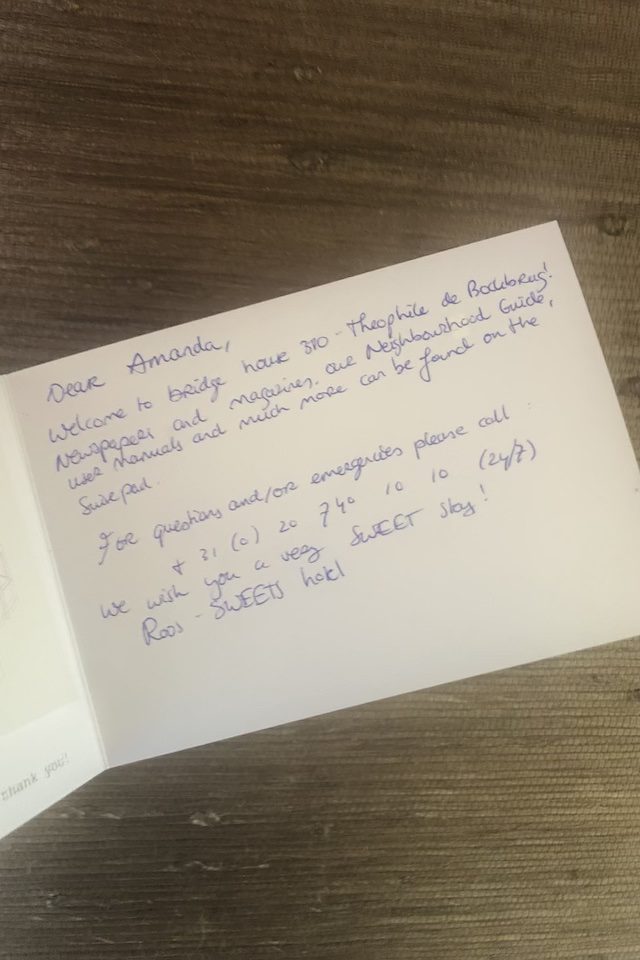 Dear Amanda,
Welcome to bridge house 310 - Theophile de Bockbrug!
Newspapers and magazines, our Neighbourhood Guide,
user manuals and much more can be found on the
Suitepad.
For questions and/or emergencies please call :
+ 31 (0) 20 740 10 10 (24/7)
We wish you a very SWEET stay!
Roos - SWEETS hotel
thank you!